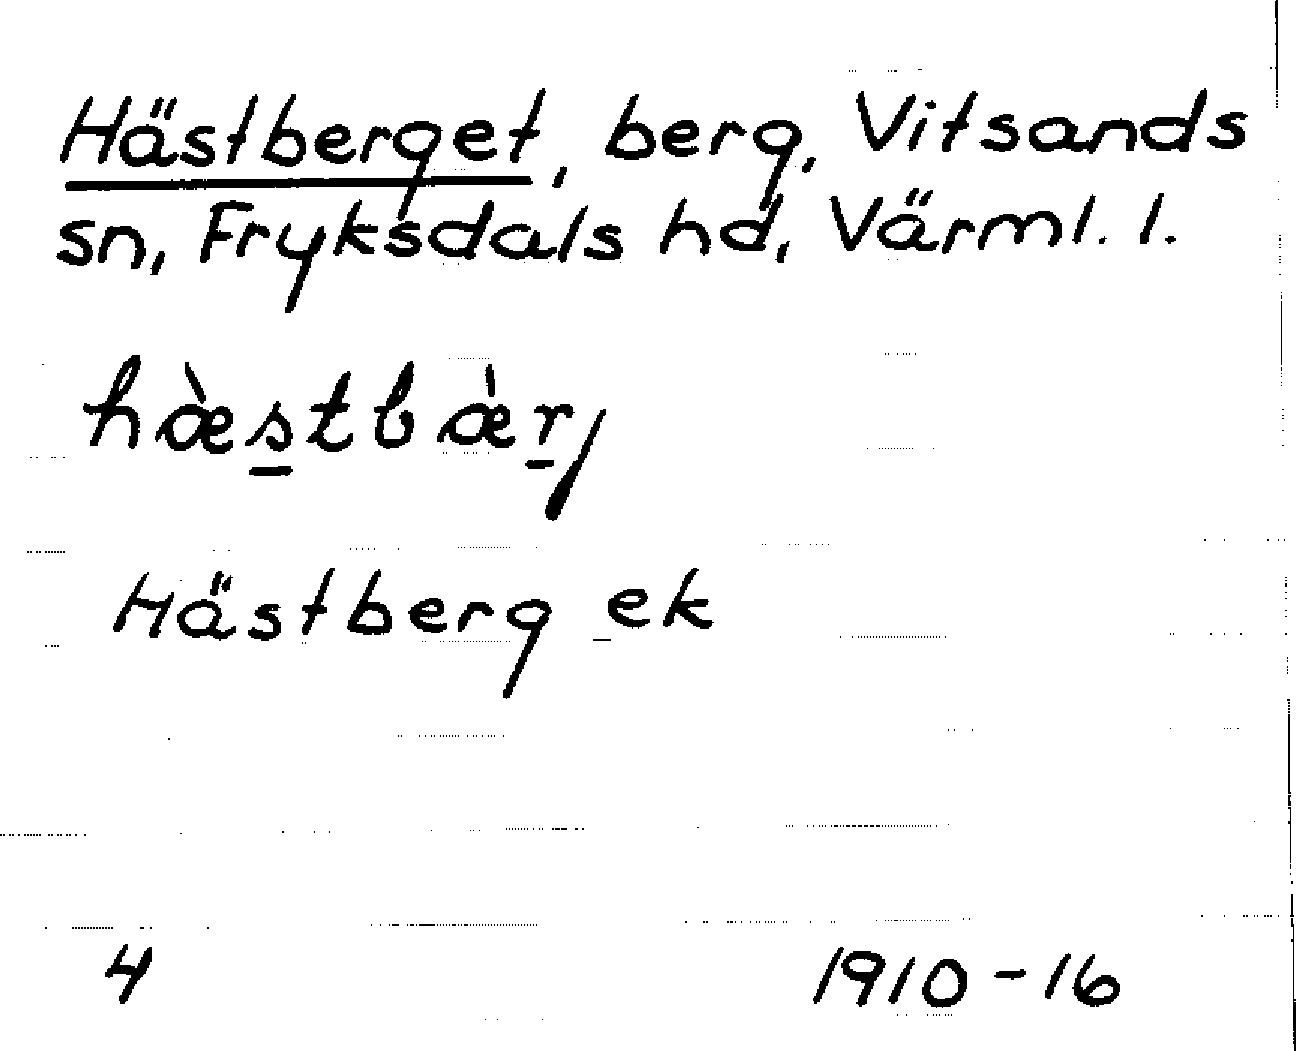 Hästberget, berg, Vitsands
sn, Fryksdals hd, Värml. l.
hæ̀s̱tbæ̀ṟ/
Hästberg ek
4
1910-16